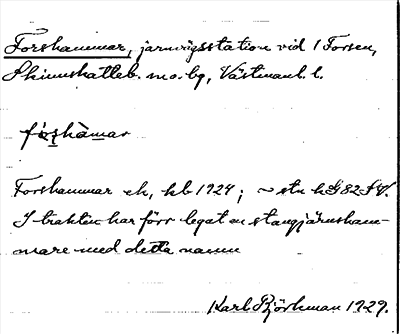 Forshammar, järnvägsstation vid 1 Forsen,
Skinnskatteb. sn o. bg, Västmanl. l.
fòṣhàmar
Forshammar ek, kb 1924; ~ stn hG 82 SV.
I trakten har förr legat en stångjärnsham-
mare med detta namn
Karl Björkman 1929.